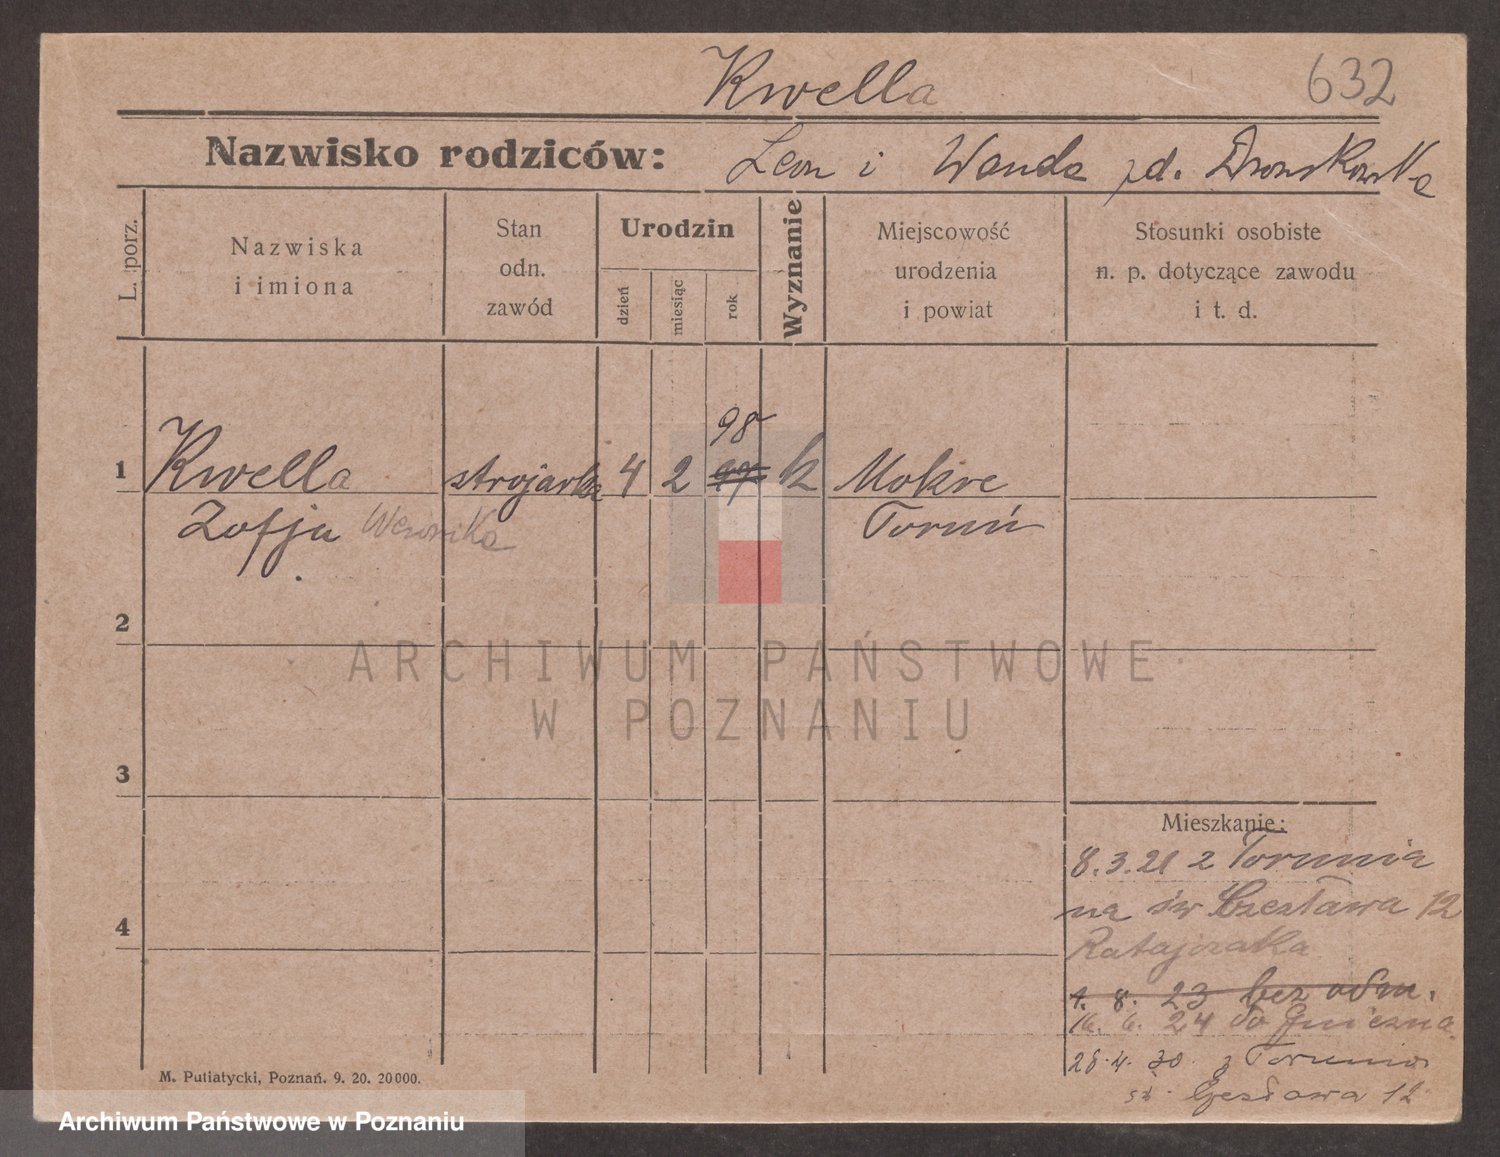 Kwella
632
Nazwisko rodziców: Leon i Wanda zd.
L. porz.
Nazwiska
i imiona
Stan
odn.
zawód
Urodzin
dzień
miesiąc
rok
Wyznanie
Miejscowość
urodzenia
i powiat
Stosunki osobiste
n. p. dotyczące zawodu
i t. d.
98
1 Kwella strojarka 4 2 97 k Mokre
Zofja Weronika Toruń
2
3
4
Mieszkanie:
8.3.21 z Torunia
na św Czesława 12
Ratajczaka
1. 8. 23 bez odm.
16. 6. 24 do Gniezna
28.4.30 z Torunia
św. Czesława 12
M. Putiatycki, Poznań. 9. 20. 20000.
ARCHIWUM PAŃSTWOWE
W POZNANIU
Archiwum Państwowe w Poznaniu